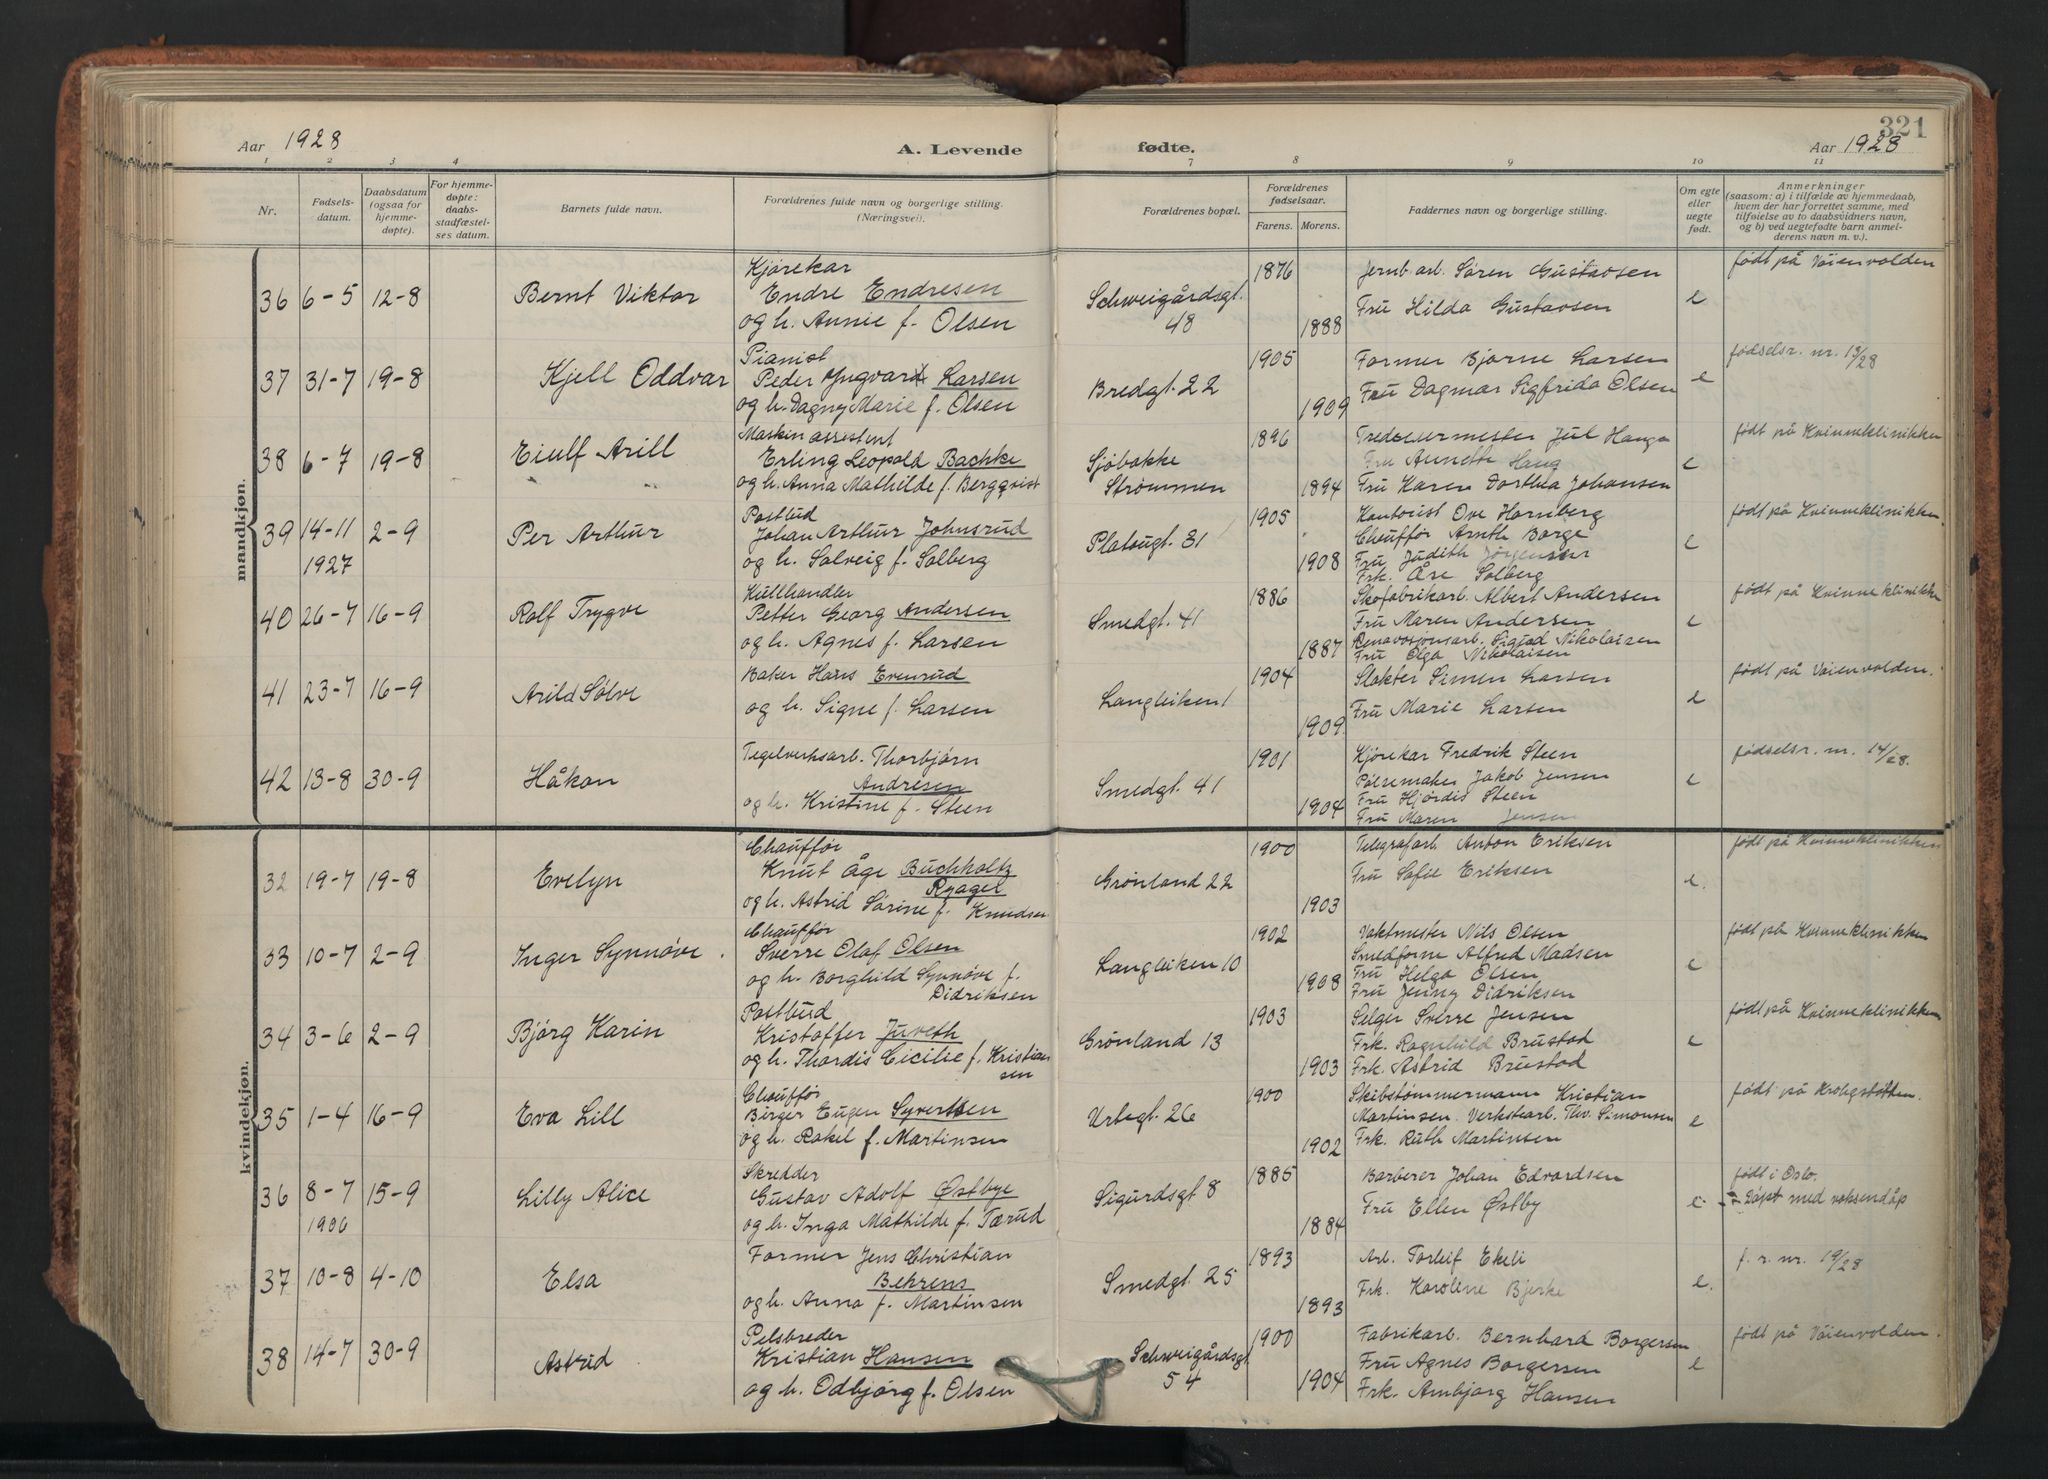 321
Aar 1928
A. Levende
fødte.
Aar 1928
1 2 3 4 7 8 9 10 11
Nr.
Fødsels-
datum.
Daabsdatum
(ogsaa for
hjemme-
døpte).
For hjemme-
døpte:
daabs-
stadfæstel-
ses datum.
Barnets fulde navn.
Forældrenes fulde navn og borgerlige stilling.
(Næringsvei).
Forældrenes bopæl.
Forældrenes
fødselsaar.
Farens. Morens.
Faddernes navn og borgerlige stilling.
Om egte
eller
uegte
født.
Anmerkninger
(saasom: a) i tilfælde av hjemmedaab,
hvem der har forrettet samme, med
tilføielse av to daabsvidners navn,
og b) ved uegtefødte barn anmel-
derens navn m. v.).
mandkjøn.
36 6-5 12-8 Bernt Viktor
Kjørekar
Endre Endresen
og h. Annie f. Olsen
Schweigårdsgt.
48
1876
1888
Jernb. arb. Søren Gustavsen
Fru Hilda Gustavsen
e
født på Vøienvolden
37 31-7 19-8 Kjell Oddvar
Pianist
Peder Yngvard Larsen
og h. Dagny Marie f. Olsen
Bredgt. 22
1905
1909
Former Bjarne Larsen
Fru Dagmar Sigfrida Olsen
e
fødselsr. nr. 13/28
38 6-7 19-8 Eiulf Arill
Maskinassistent
Erling Leopold Bachke
og h. Anna Mathilde f. Bergqvist
Sjøbakke
Strømmen
1896
1894
Jul Hauga
Fru Annette Haug
Fru Karen Dorthea Johansen
e
født på Kvinneklinikken
39 14-11 2-9 Per Arthur
1927
Postbud
Johan Arthur Johnsrud
og h. Solveig f. Solberg
Platougt. 31
1905
1908
Kontorist Ove Hornberg
Chauffør Arnth Borge
Fru Judith Jørgensen
Frk. Åse Solberg
e
født på Kvinneklinikken.
40 26-7 16-9 Rolf Trygve
Kullhandler
Petter Georg Andersen
og h. Agnes f. Larsen
Smedgt. 41
1886
1887
Skofabrikarb. Albert Andersen
Fru Maren Andersen
Renovasjonsarb. Sigurd Nikolaisen
Fru Olga Nikolaisen
e
født på Kvinneklinikken
41 23-7 16-9 Arild Sølve
Baker Hans Evenrud
og h. Signe f. Larsen
Langleiken 1
1904
1909.
Slakter Simen Larsen
Fru Marie Larsen
e
født på Vøienvolden.
42 13-8 30-9 Håkon
Tegelverksarb. Thorbjørn
Andresen
og h. Kristine f. Steen
Smedgt. 41
1901
1904
Kjørekar Fredrik Steen
Pølsemaker Jakob Jensen
Fru Hjørdis Steen
Fru Maren Jensen
e
fødselsr. nr. 14/28.
kvindekjøn.
32 19-7 19-8 Evelyn
Chauffør
Knut Åge Buchholtz
Ryager
og h. Astrid Sørine f. Knudsen
Grønland 22
1900
1903
Telegrafarb. Anton Eriksen
Fru Sofie Eriksen
e.
født på Kvinneklinikken
33 10-7 2-9 Inger Synnøve.
Chauffør
Sverre Olaf Olsen
og h. Borghild Synnøve f.
Didriksen
Langleiken 10
1902
1908
Vaktmester Nils Olsen
Smedforne Alfred Madsen
Fru Helga Olsen
Fru Jenny Didriksen
e
født på Kvinneklinikken
34 3-6 2-9 Bjørg Karin
Postbud
Kristoffer Juveth
og h. Thordis Cicilie f. Kristian
sen
Grønland 13
1903
1903
Selger Sverre Jensen
Frk. Ragnhild Brustad
Frk. Astrid Brustad
e
født på Kvinneklinikken
35 1-4 16-9 Eva Lill
Chauffør
Birger Eugen Syvertsen
og h. Rakel f. Martinsen
Urtegt. 26
1900
1902
Skibstømmermann Kristian
Martinsen. Verkstarb. Thv. Simonsen
Frk. Ruth Martinsen
e
født på Krohgstøtten.
36 8-7 15-9 Lilly Alice
1906
Skredder
Gustav Adolf Østbye
og h. Inga Mathilde f. Tærud
Sigurdsgt 8
1885
1884
Barberer Johan Edvardsen
Fru Ellen Østby
e
født i Oslo.
Døpt med voksendåp
37 10-8 4-10 Elsa
Former Jens Christian
Behrens
og h. Anna f. Martinsen
Smedgt. 25
1893
1893
Arb. Torleif Ekeli
Frk. Karoline Bjerke
e.
f. r. nr. 19/28
38 14-7 30-9 Astrid
Pelsbreder
Kristian Hansen
og h. Odbjørg f. Olsen
Schweigårdsgt
54
1900
1904
Fabrikarb. Bernhard Borgersen
Fru Agnes Borgersen
Frk. Arnbjørg Hansen
e
født på Vøienvolden.